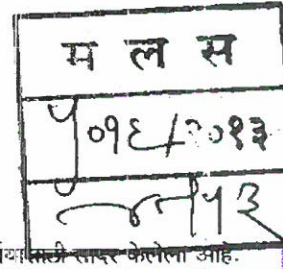 म ल स
५०१६/२०१३
१३
सादर केलेला आहे.